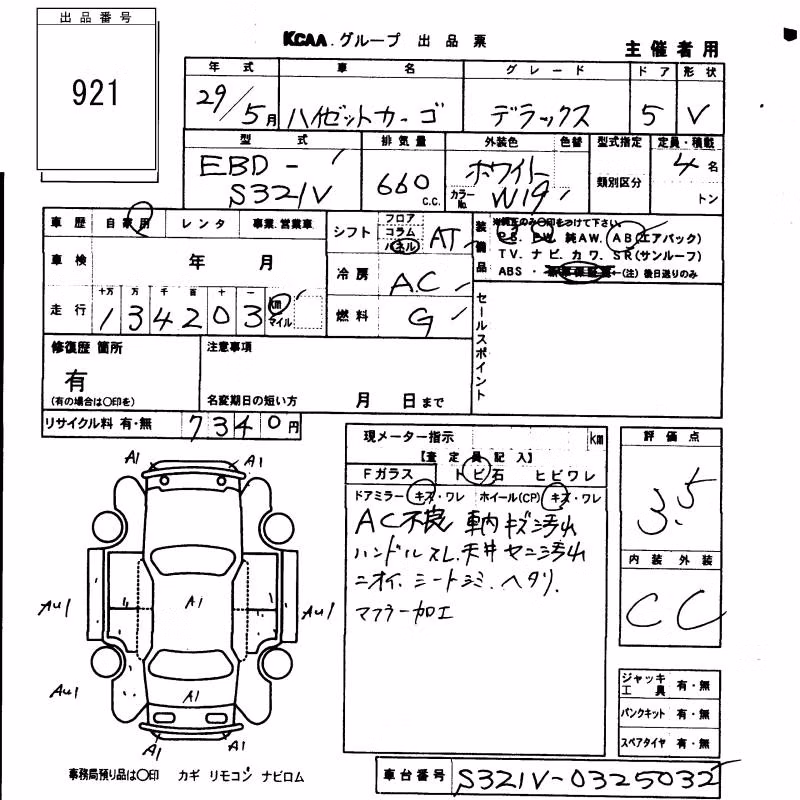 出品番号
921
KCAA.グループ 出品票
主催者用
年式 車名 グレード ドア 形状
29/5月 ハイゼットカーゴ デラックス 5 V
型式 排気量 外装色 色替 型式指定 定員・積載
EBD-
S321V
660 c.c.
ホワイト
カラーNo. W19
類別区分
4名
トン
車歴 自家用 レンタ 事業.営業車
シフト フロア コラム パネル AT
装備品
※純正のみ〇印をつけて下さい。
P.S. P.W. 純AW. AB(エアバック)
TV. ナビ. カワ. SR(サンルーフ)
ABS・ ←(注)後日送りのみ
車検 年 月
冷房 AC
走行 十万 万 千 百 十 一
134203 km マイル
燃料 G
セールスポイント
修復歴 箇所
有
(有の場合は〇印を)
注意事項
名変期日の短い方 月 日まで
リサイクル料 有・無 7340円
現メーター指示 km
【査定員記入】
Fガラス トビ石 ヒビワレ
ドアミラー キズ・ワレ ホイール(CP) キズ・ワレ
AC不良 車内キズ汚れ
ハンドルスレ.天井ヤニ汚れ
ニオイ.シートシミ.ヘタリ.
マフラー加工
評価点
3.5
内装 外装
C C
A1 A1
AU1 A1 AU1
AU1 A1
A1 A1
ジャッキ 工具 有・無
パンクキット 有・無
スペアタイヤ 有・無
事務局預り品は〇印 カギ リモコン ナビロム
車台番号 S321V-0325032